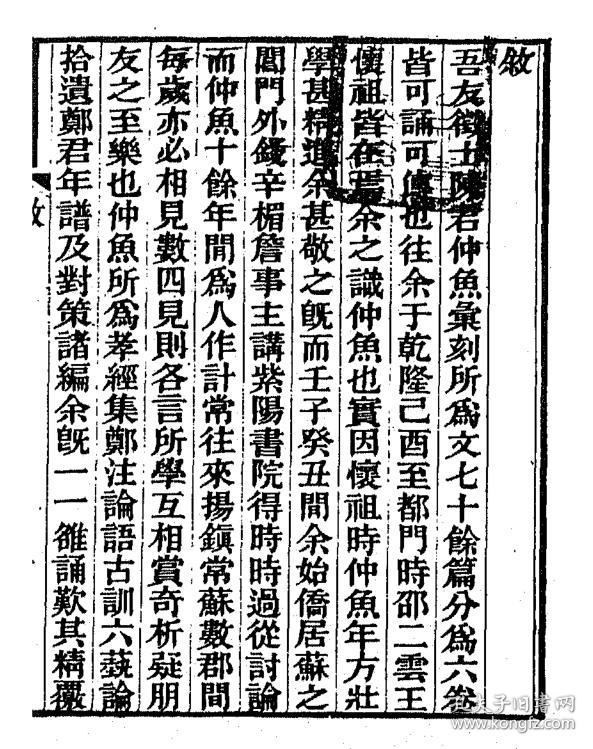 敘
吾友徵士陳君仲魚彙刻所爲文七十餘篇分爲六卷
皆可誦可傳也往余于乾隆己酉至都門時邵二雲王
懷祖皆在焉余之識仲魚也實因懷祖時仲魚年方壯
學甚精進余甚敬之旣而壬子癸丑間余始僑居蘇之
閶門外錢辛楣詹事主講紫陽書院得時時過從討論
而仲魚十餘年間爲人作計常往來揚鎭常蘇數郡間
每歲亦必相見數四見則各言所學互相賞奇析疑朋
友之至樂也仲魚所爲孝經集鄭注論語古訓六蓺論
拾遺鄭君年譜及對策諸編余旣一一雒誦歎其精覈
敘
孔夫子旧书网